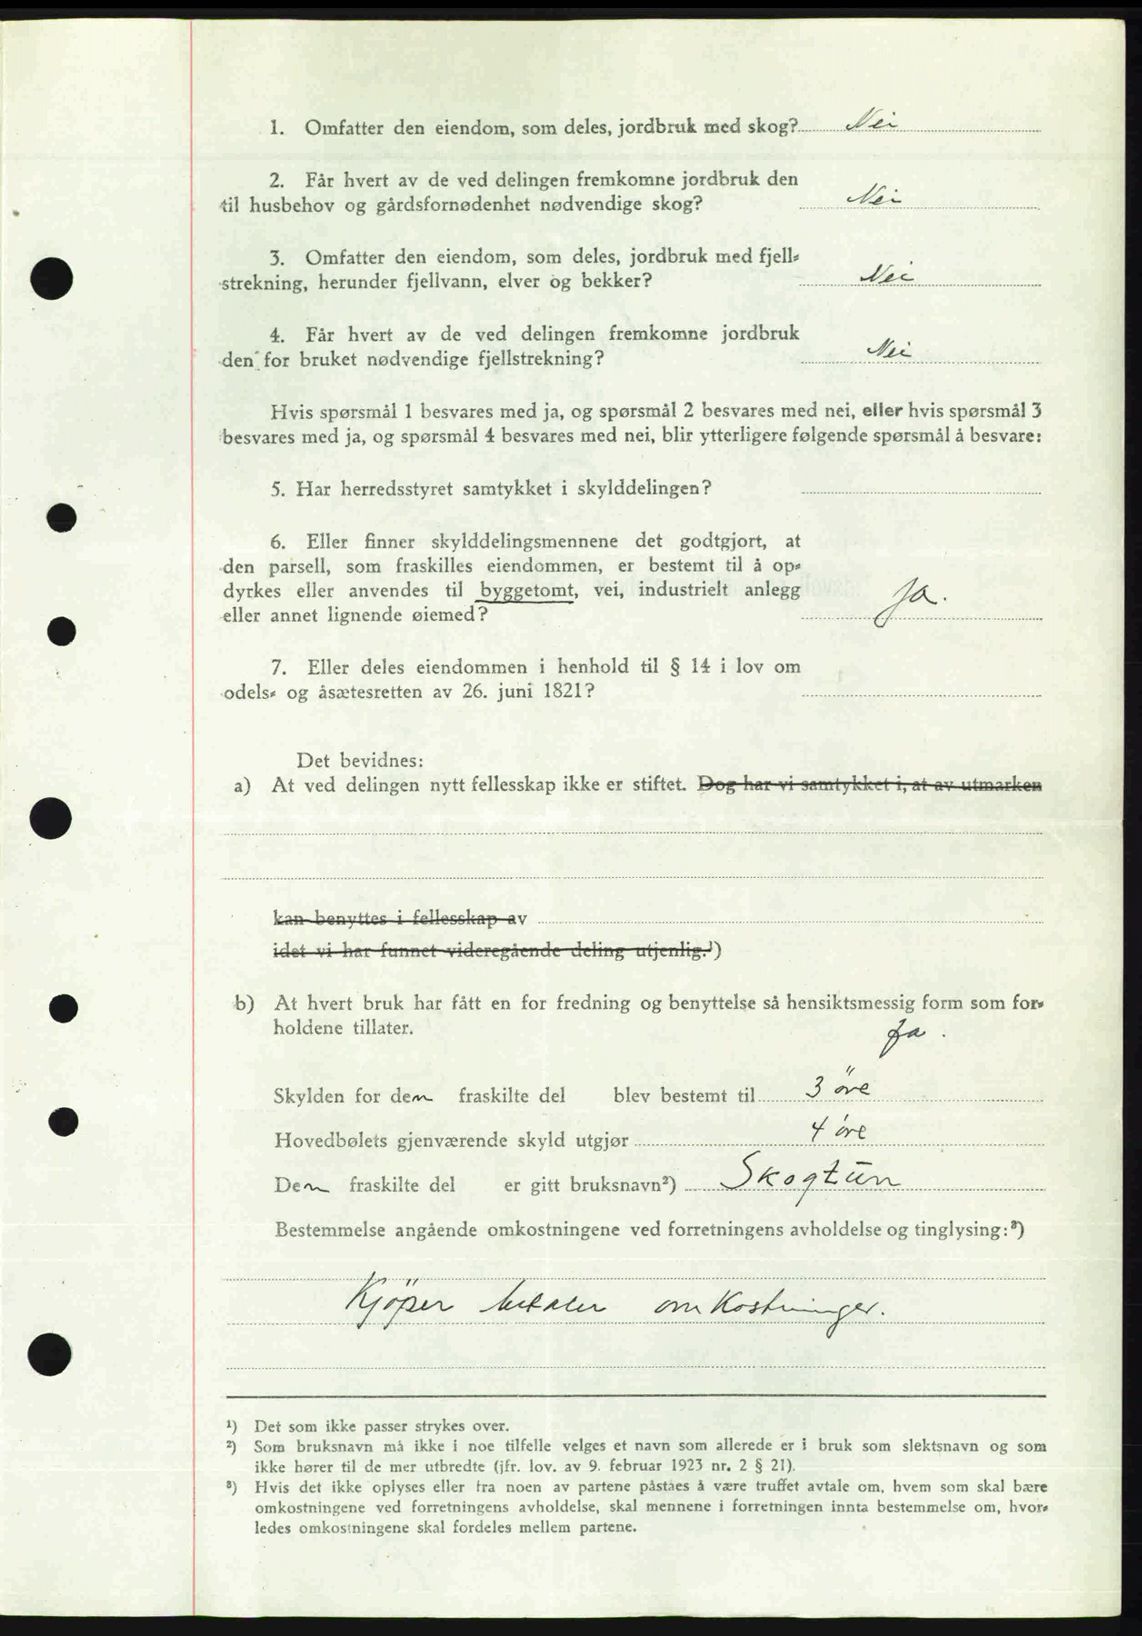 1. Omfatter den eiendom, som deles, jordbruk med skog? Nei
2. Får hvert av de ved delingen fremkomne jordbruk den
til husbehov og gårdsfornødenhet nødvendige skog? Nei
3. Omfatter den eiendom, som deles, jordbruk med fjell-
strekning, herunder fjellvann, elver og bekker? Nei
4. Får hvert av de ved delingen fremkomne jordbruk
den for bruket nødvendige fjellstrekning? Nei
Hvis spørsmål 1 besvares med ja, og spørsmål 2 besvares med nei, eller hvis spørsmål 3
besvares med ja, og spørsmål 4 besvares med nei, blir ytterligere følgende spørsmål å besvare:
5. Har herredsstyret samtykket i skylddelingen?
6. Eller finner skylddelingsmennene det godtgjort, at
den parsell, som fraskilles eiendommen, er bestemt til å op-
dyrkes eller anvendes til byggetomt, vei, industrielt anlegg
eller annet lignende øiemed? Ja.
7. Eller deles eiendommen i henhold til § 14 i lov om
odels- og åsætesretten av 26. juni 1821?
Det bevidnes:
a) At ved delingen nytt fellesskap ikke er stiftet. Dog har vi samtykket i, at av utmarken
kan benyttes i fellesskap av
idet vi har funnet videregående deling utjenlig.¹)
b) At hvert bruk har fått en for fredning og benyttelse så hensiktsmessig form som for-
holdene tillater. Ja.
Skylden for den fraskilte del blev bestemt til 3 öre
Hovedbølets gjenværende skyld utgjør 4 öre
Den fraskilte del er gitt bruksnavn²) Skogtun
Bestemmelse angående omkostningene ved forretningens avholdelse og tinglysing:³)
Kjöper betaler omkostninger.
¹) Det som ikke passer strykes over.
²) Som bruksnavn må ikke i noe tilfelle velges et navn som allerede er i bruk som slektsnavn og som
ikke hører til de mer utbredte (jfr. lov. av 9. februar 1923 nr. 2 § 21).
³) Hvis det ikke oplyses eller fra noen av partene påståes å være truffet avtale om, hvem som skal bære
omkostningene ved forretningens avholdelse, skal mennene i forretningen innta bestemmelse om, hvor-
ledes omkostningene skal fordeles mellem partene.